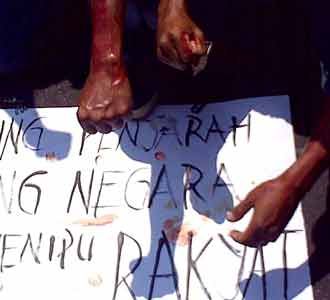 NG PENJARAH
NG NEGARA
ENIPU RAKYAT